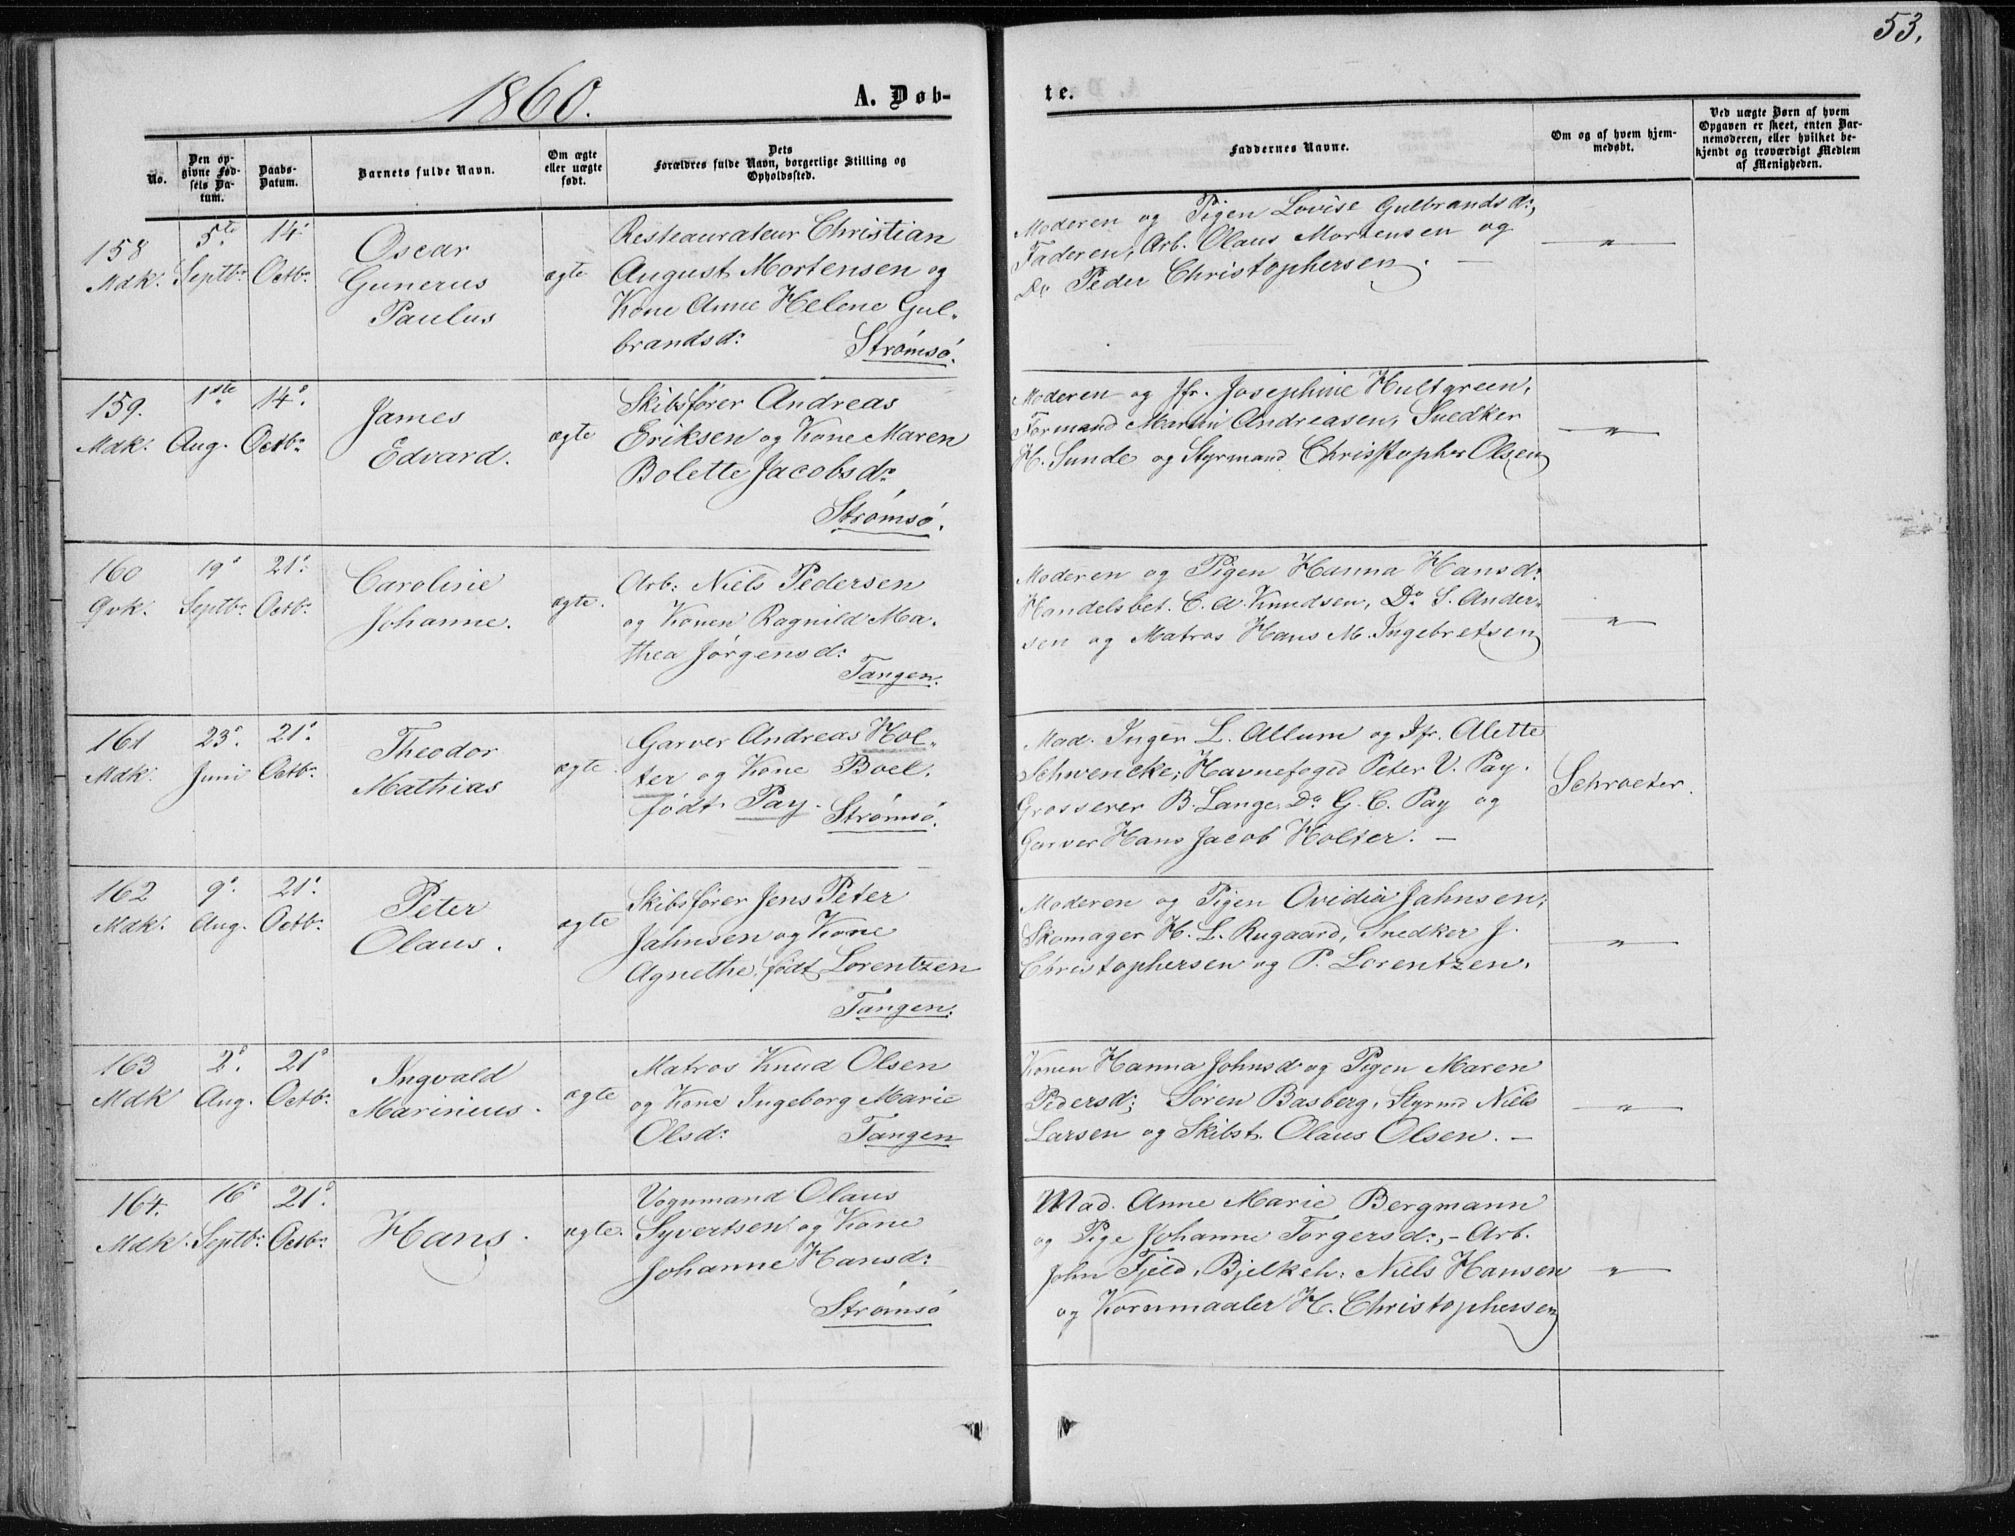 53.
1860.
A. Døb-
te.
No.
Den op-
givne Fød-
sels Da-
tum.
Daabs-
Datum.
Barnets fulde Navn.
Om ægte
eller uægte
født.
Dets
Forældres fulde Navn, borgerlige Stilling og
Opholdssted.
Faddernes Navne.
Om og af hvem hjem-
medøbt.
Ved uægte Børn af hvem
Opgaven er skeet, enten Bar-
nemoderen, eller hvilket be-
kjendt og troværdigt Medlem
af Menigheden.
158
Mdk:
5te
Septbr
14.
Octbr
Oscar
Gunerus
Paulus
ægte
Restaurateur Christian
August Mortensen og
Kone Anne Helene Gul-
brandsd:
Strømsø.
Moderen og Pigen Lovise Gulbrandsd:,
Faderen, Arb. Olaus Mortensen og
Do Peder Christophersen. —
"
159.
Mdk:
1ste
Aug.
14.
Octbr
James
Edvard.
ægte
Skibsfører Andreas
Eriksen og Kone Maren
Bolette Jacobsdr
Strømsø.
Moderen og Jfr. Josephine Hultgreen,
Formand Martin Andreasen, Snedker
H. Sunde og Styrmand Christopher Olsen
"
160
Qvk.
19.
Septbr
21.
Octbr
Caroline
Johanne.
ægte.
Arb: Niels Pedersen
og Konen Ragnild Ma-
thea Jørgensd:
Tangen.
Moderen og Pigen Hanna Hansd:
Handelsbet. C. A. Knudsen, Do S. Ander-
sen og Matros Hans M. Ingebretsen
"
161
Mdk.
23.
Juni
21.
Octbr
Theodor
Mathias
ægte.
Garver Andreas Hol-
ter og Kone Boel.
født Pay. Strømsø.
Mad. Inger L. Allum og Jfr. Alette
Schwencke, Havnefoged Peter V. Pay.
Grosserer B. Lange, Do G. C. Pay og
Garver Hans Jacob Holter. —
Schroeter.
162
Mdk.
9.
Aug.
21.
Octbr
Peter
Olaus.
ægte
Skibsfører Jens Peter
Jahnsen og Kone
Agnethe født Lorentzen
Tangen.
Moderen og Pigen Ovidia Jahnsen,
Skomager H. L. Rugaard, Snedker J.
Christophersen og P. Lorentzen.
"
163
Mdk
2.
Aug.
21
Octbr
Ingvald
Marinius.
ægte
Matros Knud Olsen
og Kone Ingeborg Marie
Olsd:
Tangen
Konen Hanna Johnsd og Pigen Maren
Pedersd; Søren Basberg, Styrmd Niels
Larsen og Skibst. Olaus Olsen. —
"
164.
Mdk.
16
Septbr:
21.
Octbr
Hans.
ægte.
Vognmand Olaus
Syvertsen og Kone
Johanne Hansd:
Strømsø
Mad. Anne Marie Bergmann
og Pige Johanne Torgersd:, - Arb.
John Fjeld, Bjelkeh: Niels Hansen
og Kornmaaler H. Christophersen
"